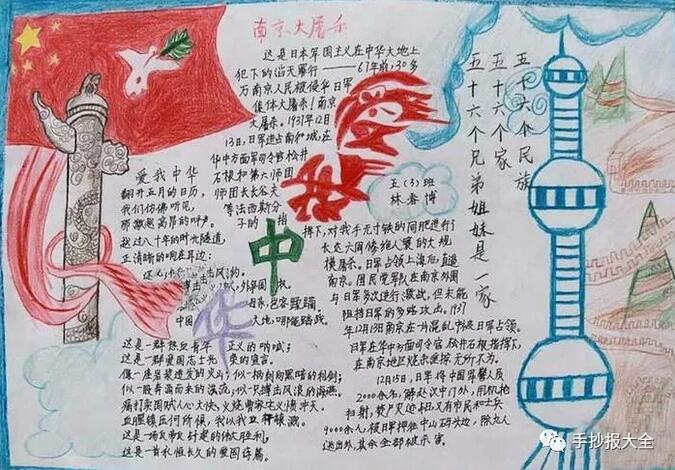 南京大屠杀
这是日本军国主义在中华大地上
犯下的滔天罪行——67年前,30多
万南京人民被侵华日军
集体大屠杀!南京
大屠杀。1937年12月
13日,日军进占南京城,在
华中方面军司令官松井
石根和第六师团
师团长谷夫
等法西斯分
子的指
挥下,对我手无寸铁的同胞进行
长达六周惨绝人寰的大规
模屠杀。日军占领上海后,直逼
南京。国民党军队在南京外围
与日军多次进行激战,但未能
阻挡日军的多路攻击。1937
年12月13日南京在一片混乱中被日军占领。
日军在华中方面司令官松井石根指挥下,
在南京地区烧杀淫掠无所不为。
12月15日,日军将中国军警人员
2000余名,解赴汉中门外,用机枪
扫射,焚尸灭迹。同日,又有市民和士兵
9000余人,被日军押往
除九人
逃出外,其余全部被杀害
爱我中华
翻开五月的日历,
我们仿佛听见,
那激越高昂的呼声。
越过八十年的时光隧道,
正清晰的响在耳边:
中国
大地,哪能践踏。
这是一群热血青年 正义的呐喊;
这是一群爱国志士光荣的宣言。
像一座岩浆迸发的火山;似一柄刺向黑暗的利剑;
似一股奔涌而来的潮流;似一只搏击风浪的海燕。
痛打卖国贼人心大快,火烧曹家宅义愤冲天。
血腥镇压何所惧,我以我血荐轩辕。
这是一场反帝反封建的伟大胜利,
这是一首永恒长久的爱国诗篇。
爱
我
中
华
五(3)班
林春博
五十六个民族
五十六个家
五十六个兄弟姐妹是一家
手抄报大全